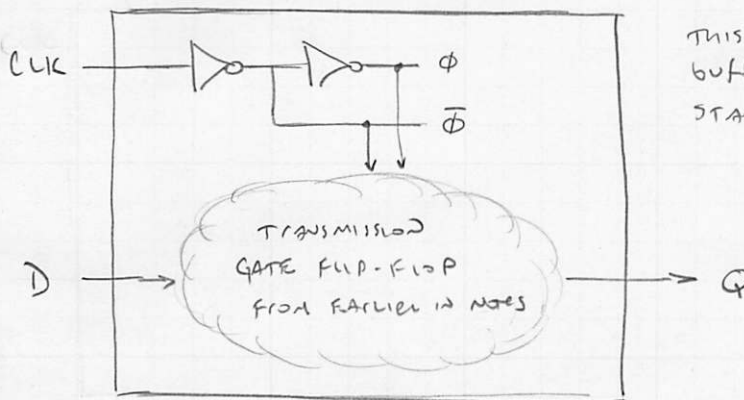 THIS
CLK
ϕ
ϕ̅
TRANSMISSION
GATE FLIP-FLOP
FROM EARLIER IN NOTES
D